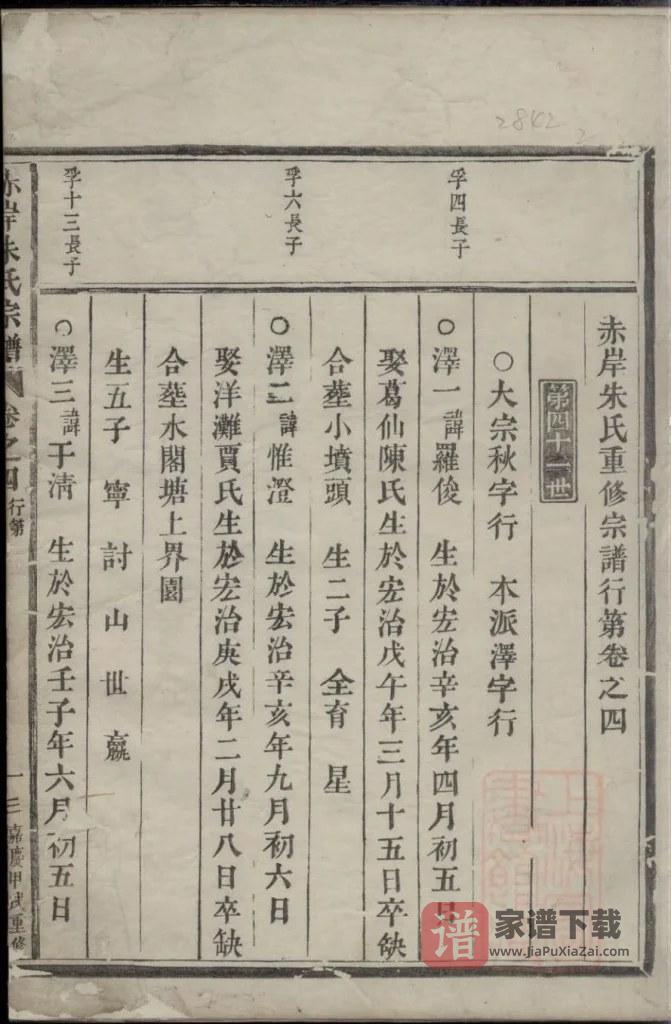 2842
2
赤岸朱氏重修宗譜行第卷之四
第四十二世
大宗秋字行 本派澤字行
孚四長子
○澤一諱羅俊 生於宏治辛亥年四月初五日
娶葛仙陳氏生於宏治戊午年三月十五日卒缺
合塟小墳頭 生二子 全育星
孚六長子
○澤二諱惟澄 生於宏治辛亥年九月初六日
娶洋灘賈氏生於宏治庚戌年二月廿八日卒缺
合塟水閣塘上界園
生五子 寧討山世嬴
孚十三長子
○澤三諱于清 生於宏治壬子年六月初五日
赤岸朱氏宗譜 卷之四 行第
嘉慶甲戌重修
譜 家谱下载
www.JiaPuXiaZai.com